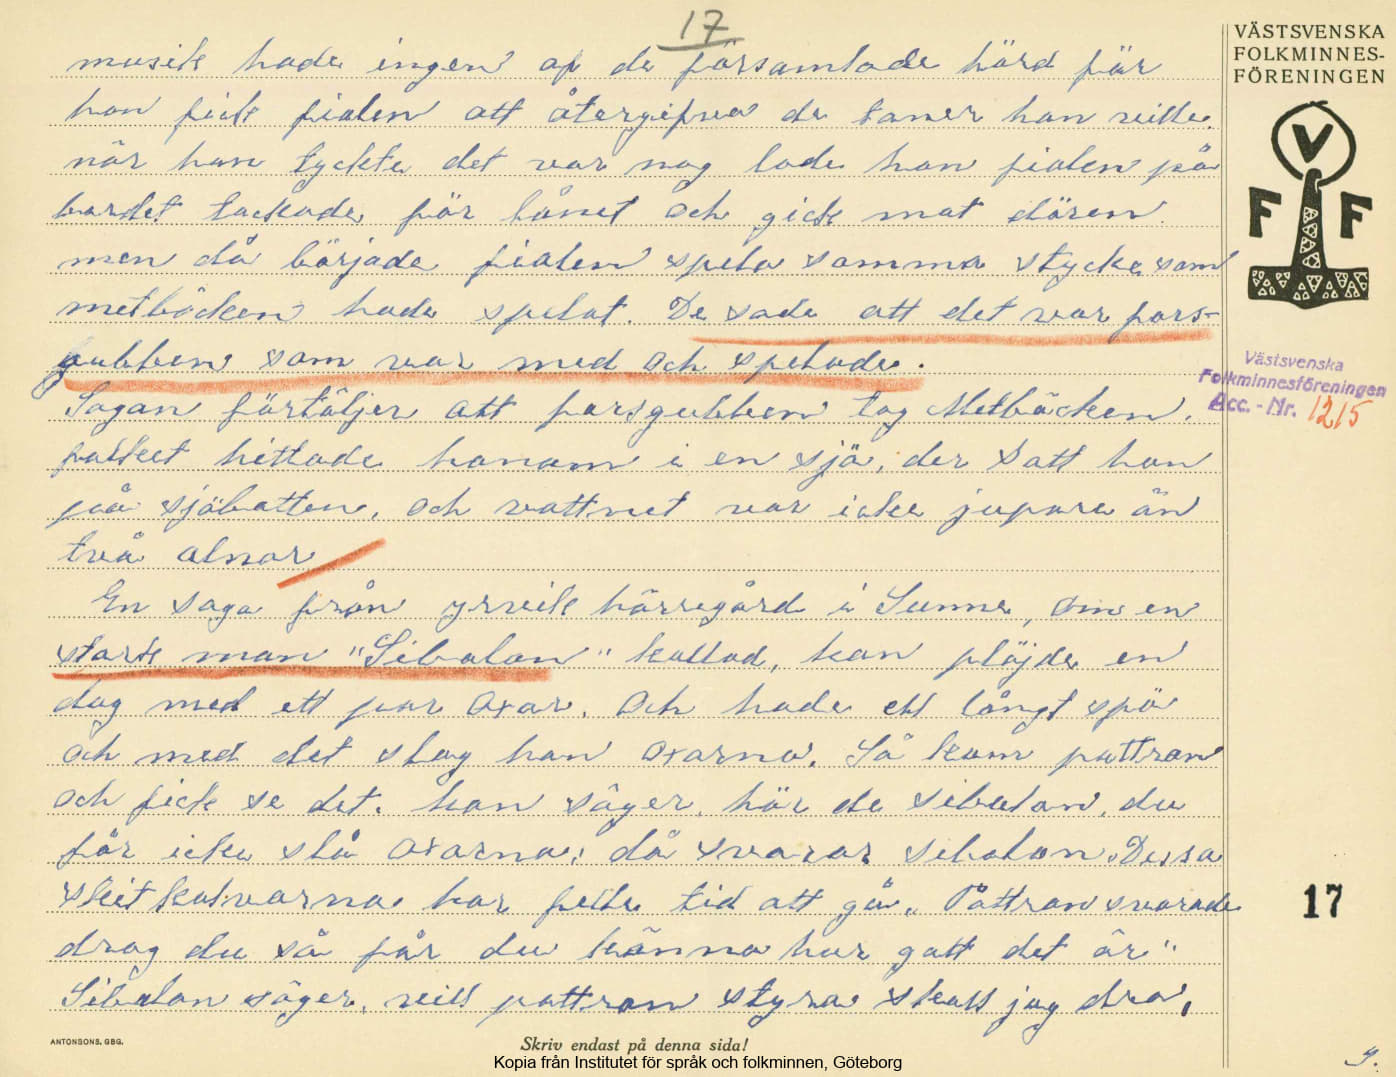 17
VÄSTSVENSKA
FOLKMINNES-
FÖRENINGEN
V
F F
musik hade ingen af de församlade hörd för
han fick fiolen att återgifva de toner han ville.
när han tyckte det var nog lade han fiolen på
bordet tackade för lånet och gick mot dören
men då började fiolen spela samma stycke som
metbäcken hade spelat. De sade att det var fors-
gubben som var med och spelade.
Sagan förtäljer att forsgubben tog Metbäcken.
folket hittade honom i en sjö, der satt han
på sjöbotten, och vattnet var icke jupare än
två alnar
En saga från yrvik härregård i Sunne, om en
stark man "Sibolan" kallad, han plöjde en
dag med ett par oxar. Och hade ett långt spö
och med det slog han oxarna. Så kom pattron
och fick se det. han säger. hör du sibolan, du
får icke slå oxarna, då svarar sibolan. Dessa
skit kalvarna har felle tid att gå. Påttron svarade
drag du så får du känna hur gott det är"
Sibolan säger, vill pattron styra skall jag dra,
Västsvenska
Folkminnesföreningen
Acc. - Nr. 1215
17
ANTONSONS, GBG.
Skriv endast på denna sida!
Kopia från Institutet för språk och folkminnen, Göteborg